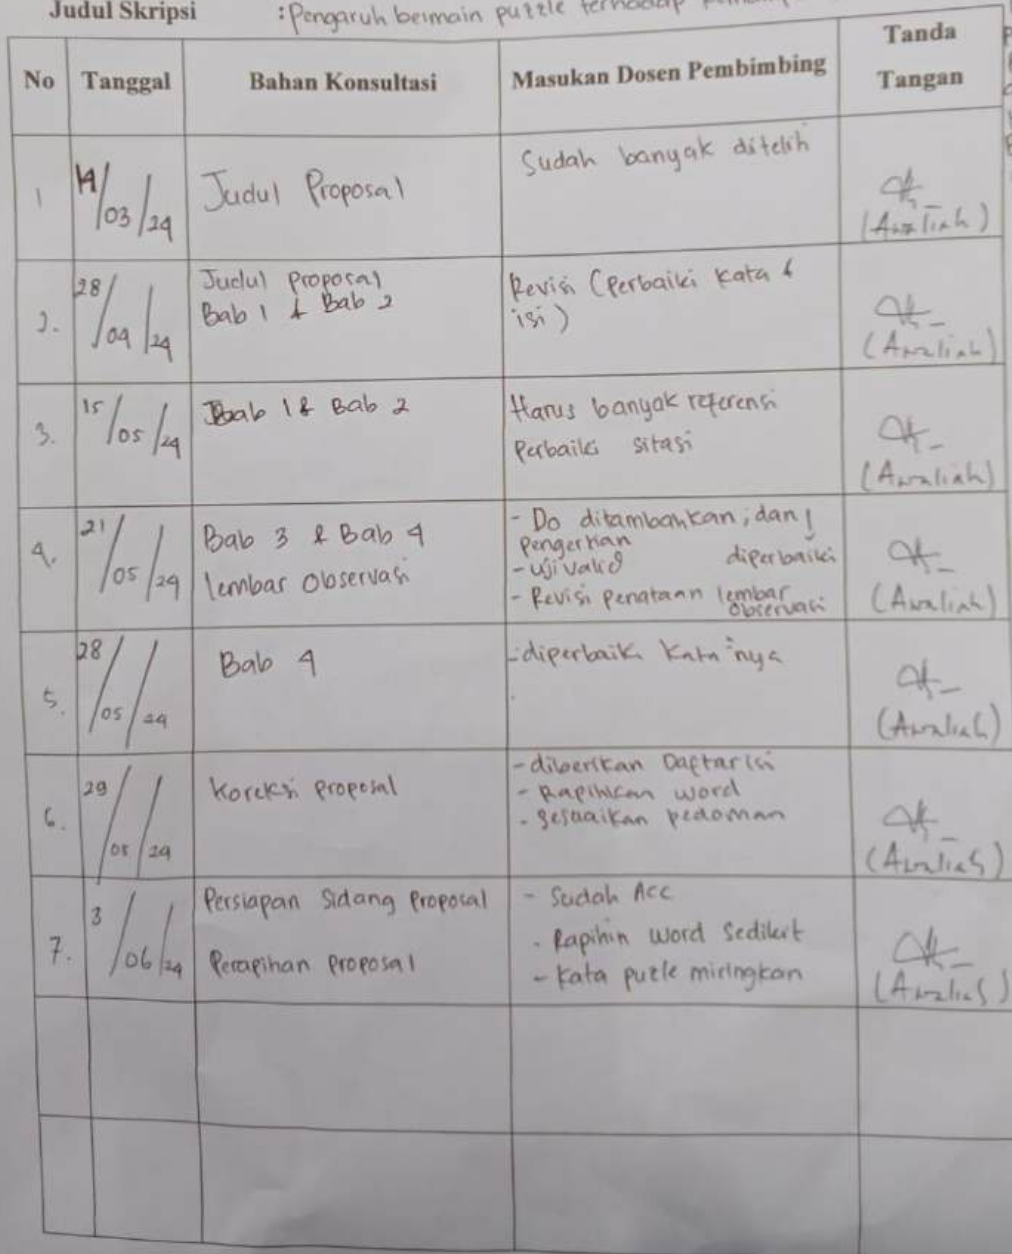 Judul Skripsi : Pengaruh bermain puzzle terhadap
No Tanggal Bahan Konsultasi Masukan Dosen Pembimbing Tanda Tangan
1 14/03/24 Judul Proposal Sudah banyak ditelih
(Awaliah)
2. 28/04/24 Judul Proposal Revisi (Perbaiki kata &
Bab 1 & Bab 2 isi)
(Awaliah)
3. 15/05/24 Bab 1 & Bab 2 Harus banyak referensi
Perbaiki sitasi
(Awaliah)
4. 21/05/24 Bab 3 & Bab 4 - Do ditambahkan, dan
Pengertian
lembar Observasi - Uji valid diperbaiki
- Revisi penataan lembar
observasi
(Awaliah)
5. 28/05/24 Bab 4 - diperbaiki kata"nya
(Awaliah)
6. 29/05/24 Koreksi Proposal - diberikan Daftar isi
- Rapihkan word
- sesuaikan pedoman
(Awaliah)
7. 3/06/24 Persiapan Sidang Proposal - Sudah Acc
- Rapihin word Sedikit
Perapihan Proposal - Kata puzle miringkan
(Awaliah)